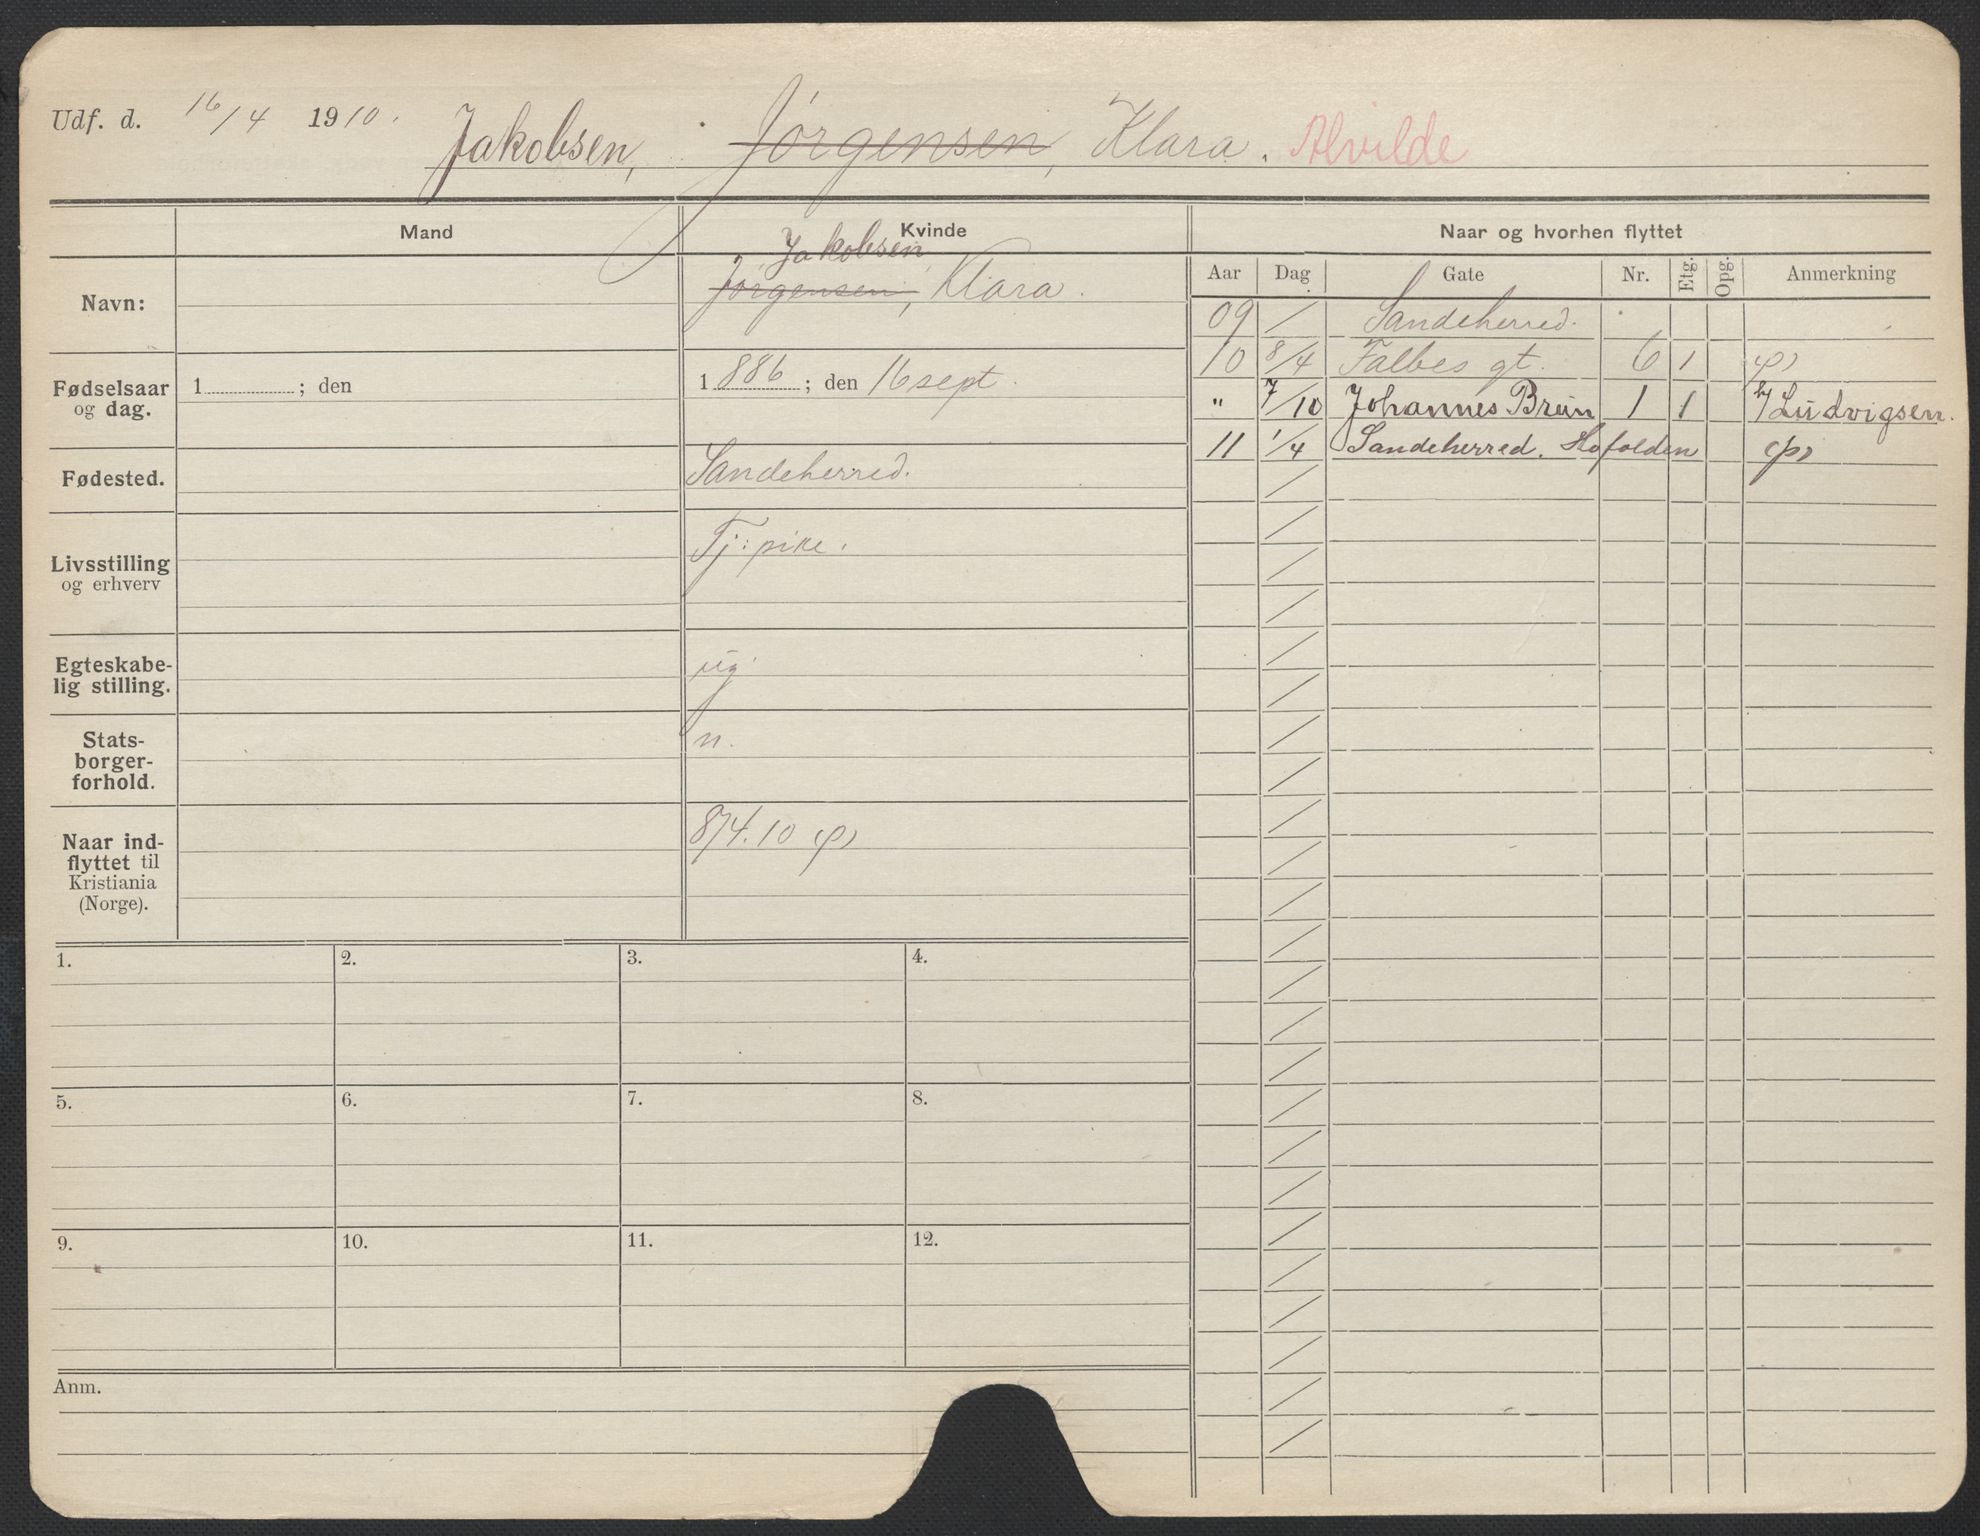 Udf. d. 16/4 1910. Jakobsen, Jørgensen, Klara. Alvilde
Mand
Kvinde
Naar og hvorhen flyttet
Navn:
Jakobsen
Jørgensen, Klara.
Fødselsaar og dag.
1 ; den
1 886 ; den 16 sept.
Fødested.
Sandeherred.
Livsstilling og erhverv
Tj: pike.
Egteskabe-
lig stilling.
ug.
Stats-
borger-
forhold.
n.
Naar ind-
flyttet til
Kristiania
(Norge).
8/4.10 (p)
Aar Dag Gate Nr. Etg. Opg. Anmerkning
09 / Sandeherred.
10 8/4 Falbes gt. 6 1 (p)
" 7/10 Johannes Brun 1 1 h/ Ludvigsen.
11 1/4 Sandeherred. (p)
1. 2. 3. 4.
5. 6. 7. 8.
9. 10. 11. 12.
Anm.